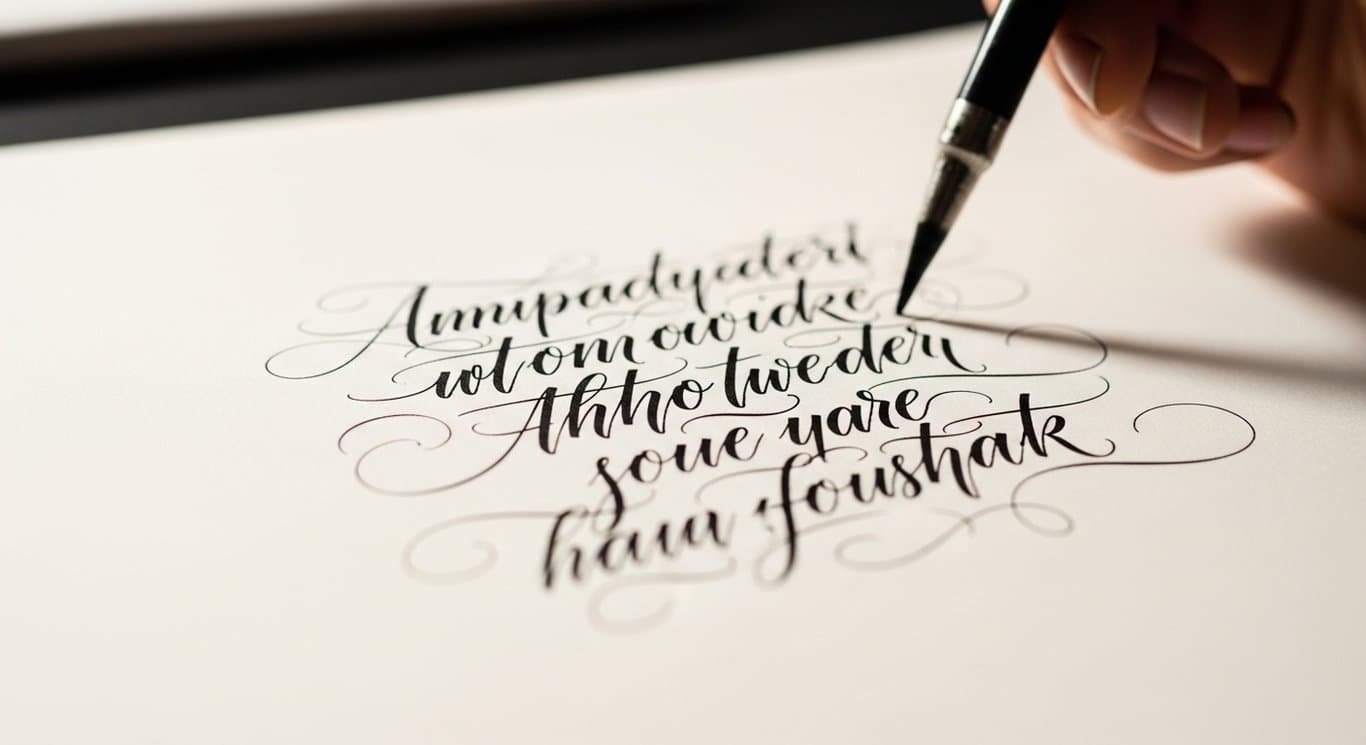 Annipadyederi
wtomowidke
Ahhotwederi
soue yare
hauu foushak